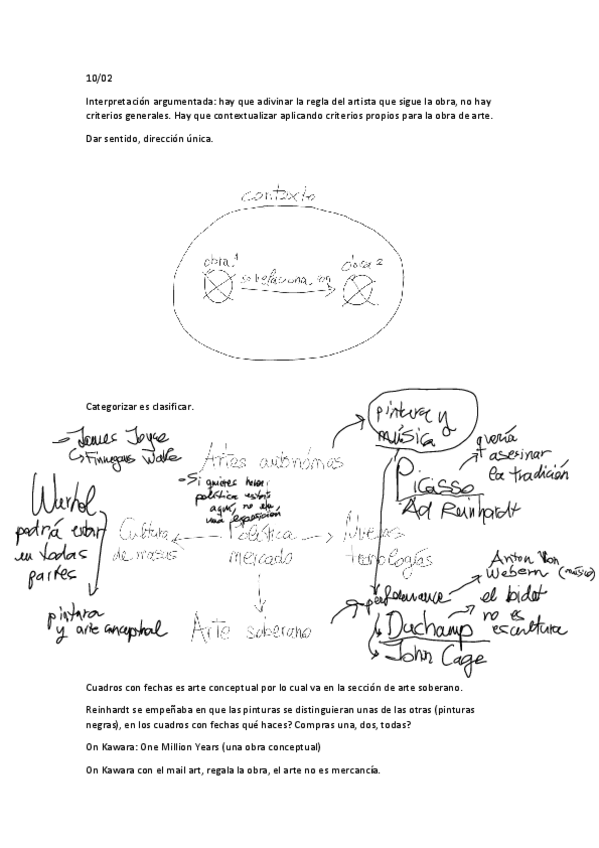 10/02
Interpretación argumentada: hay que adivinar la regla del artista que sigue la obra, no hay
criterios generales. Hay que contextualizar aplicando criterios propios para la obra de arte.
Dar sentido, dirección única.
contexto
obra 1
se relaciona
obra 2
Categorizar es clasificar.
James Joyce
Finnegans Wake
Artes autónomas
pintura y
música
quería
asesinar
la tradición
Picasso
Ad Reinhardt
Si quieres hacer
política
aquí, no en
una exposición
Warhol
podría estar
en todas
partes
pintura
y arte conceptual
Cultura
de masas
Política
mercado
Nuevas
tecnologías
Arte soberano
performance
Duchamp
John Cage
Anton Von
Webern (músico)
el bidet
no es
escultura
Cuadros con fechas es arte conceptual por lo cual va en la sección de arte soberano.
Reinhardt se empeñaba en que las pinturas se distinguieran unas de las otras (pinturas
negras), en los cuadros con fechas qué haces? Compras una, dos, todas?
On Kawara: One Million Years (una obra conceptual)
On Kawara con el mail art, regala la obra, el arte no es mercancía.